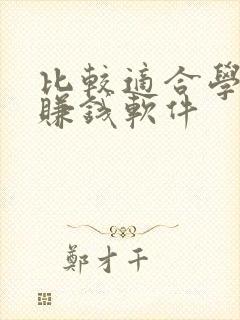 比較適合學
賺錢軟件
鄭才千